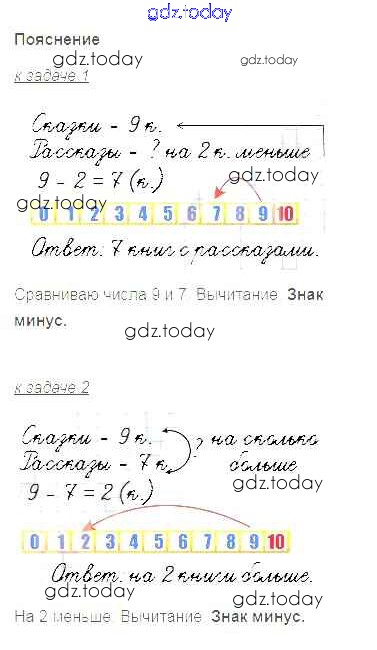 gdz.today
Пояснение
gdz.today gdz.today
к задаче 1
Сказки - 9 к.
Рассказы - ? на 2 к. меньше
9 - 2 = 7 (к.) gdz.today
gdz.today
0 1 2 3 4 5 6 7 8 9 10
Ответ: 7 книг с рассказами.
Сравниваю числа 9 и 7. Вычитание. Знак
минус.
gdz.today
к задаче 2
gdz.today
Сказки - 9 к. ? на сколько
Рассказы - 7 к. больше
9 - 7 = 2 (к.) gdz.today
0 1 2 3 4 5 6 7 8 9 10
Ответ. на 2 книги больше.
gdz.today gdz.today
На 2 меньше. Вычитание. Знак минус.